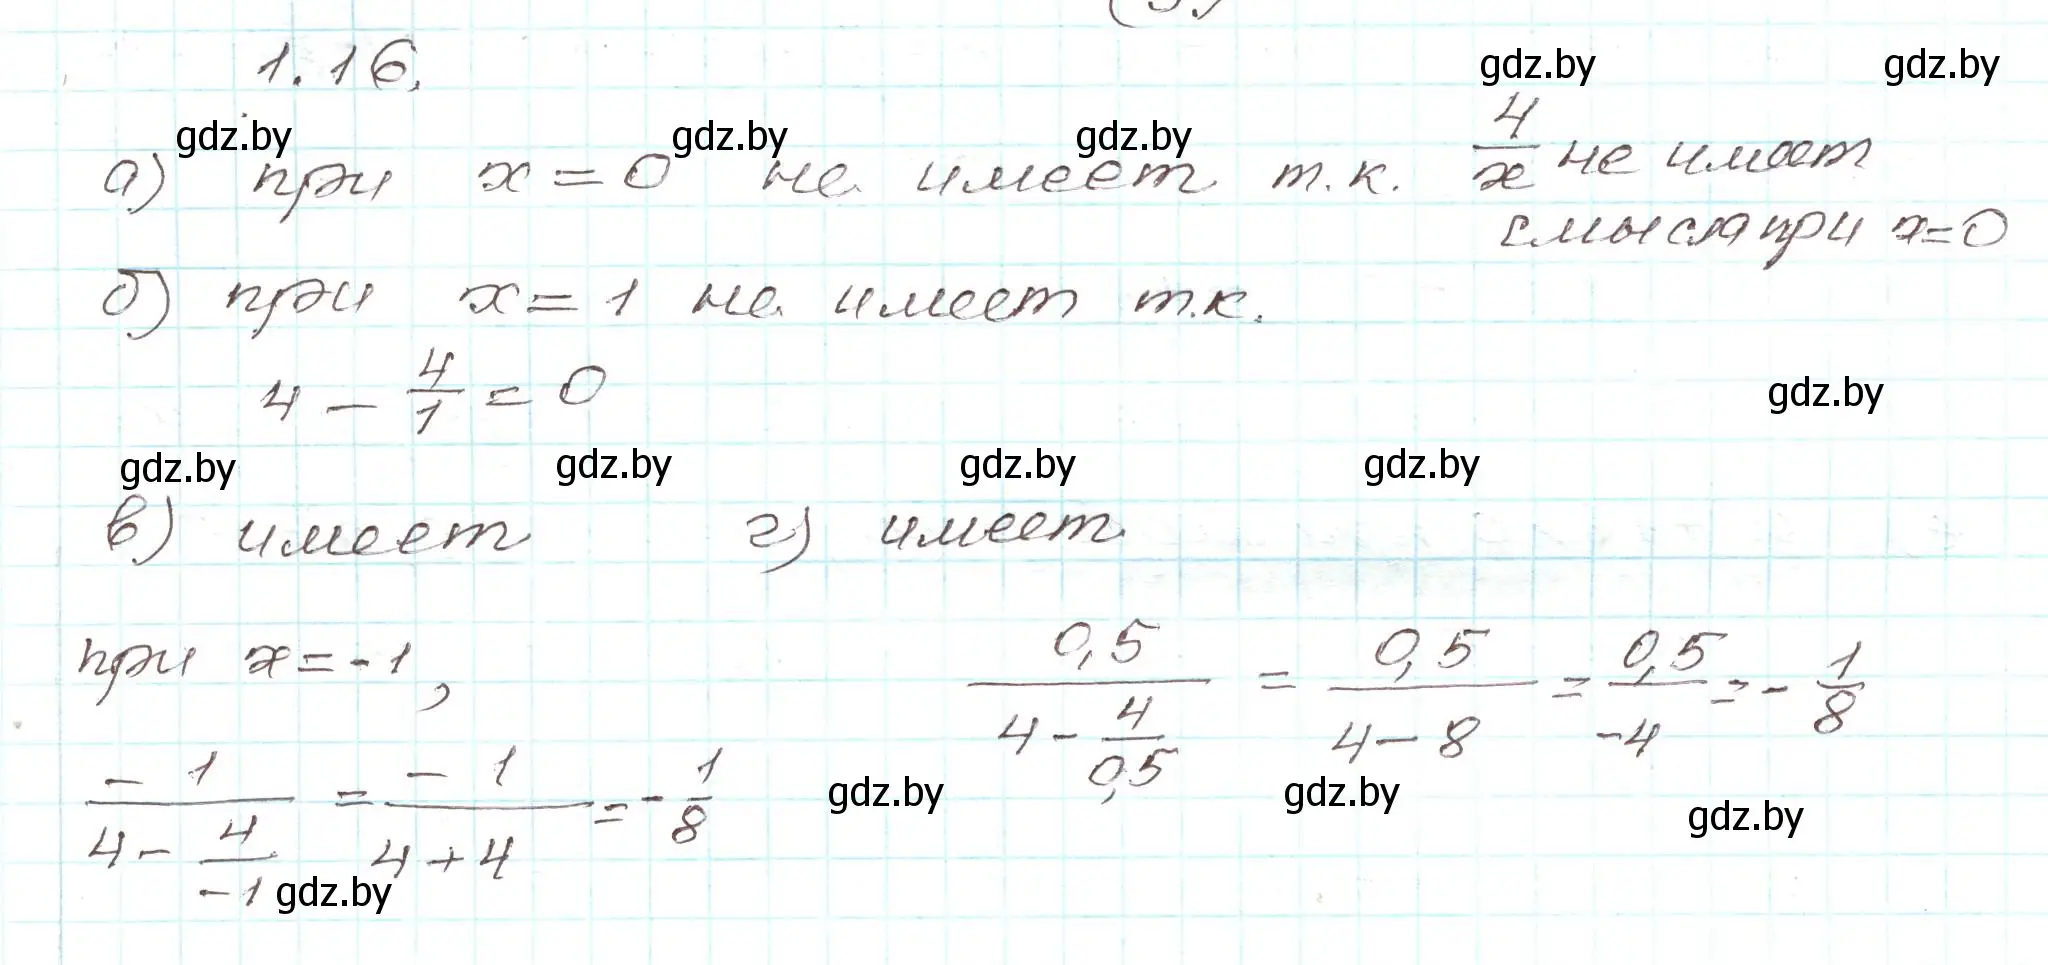 1.16.
gdz.by gdz.by
gdz.by gdz.by gdz.by
а) при x = 0 не имеет т.к. 4/x не имеет
смысла при x=0
б) при x = 1 не имеет т.к.
4 - 4/1 = 0
gdz.by
gdz.by gdz.by gdz.by gdz.by
в) имеет г) имеет
при x = -1,
0,5/(4 - 4/0,5) = 0,5/(4 - 8) = 0,5/-4 = - 1/8
-1/(4 - 4/-1) = -1/(4 + 4) = - 1/8
gdz.by gdz.by gdz.by
gdz.by